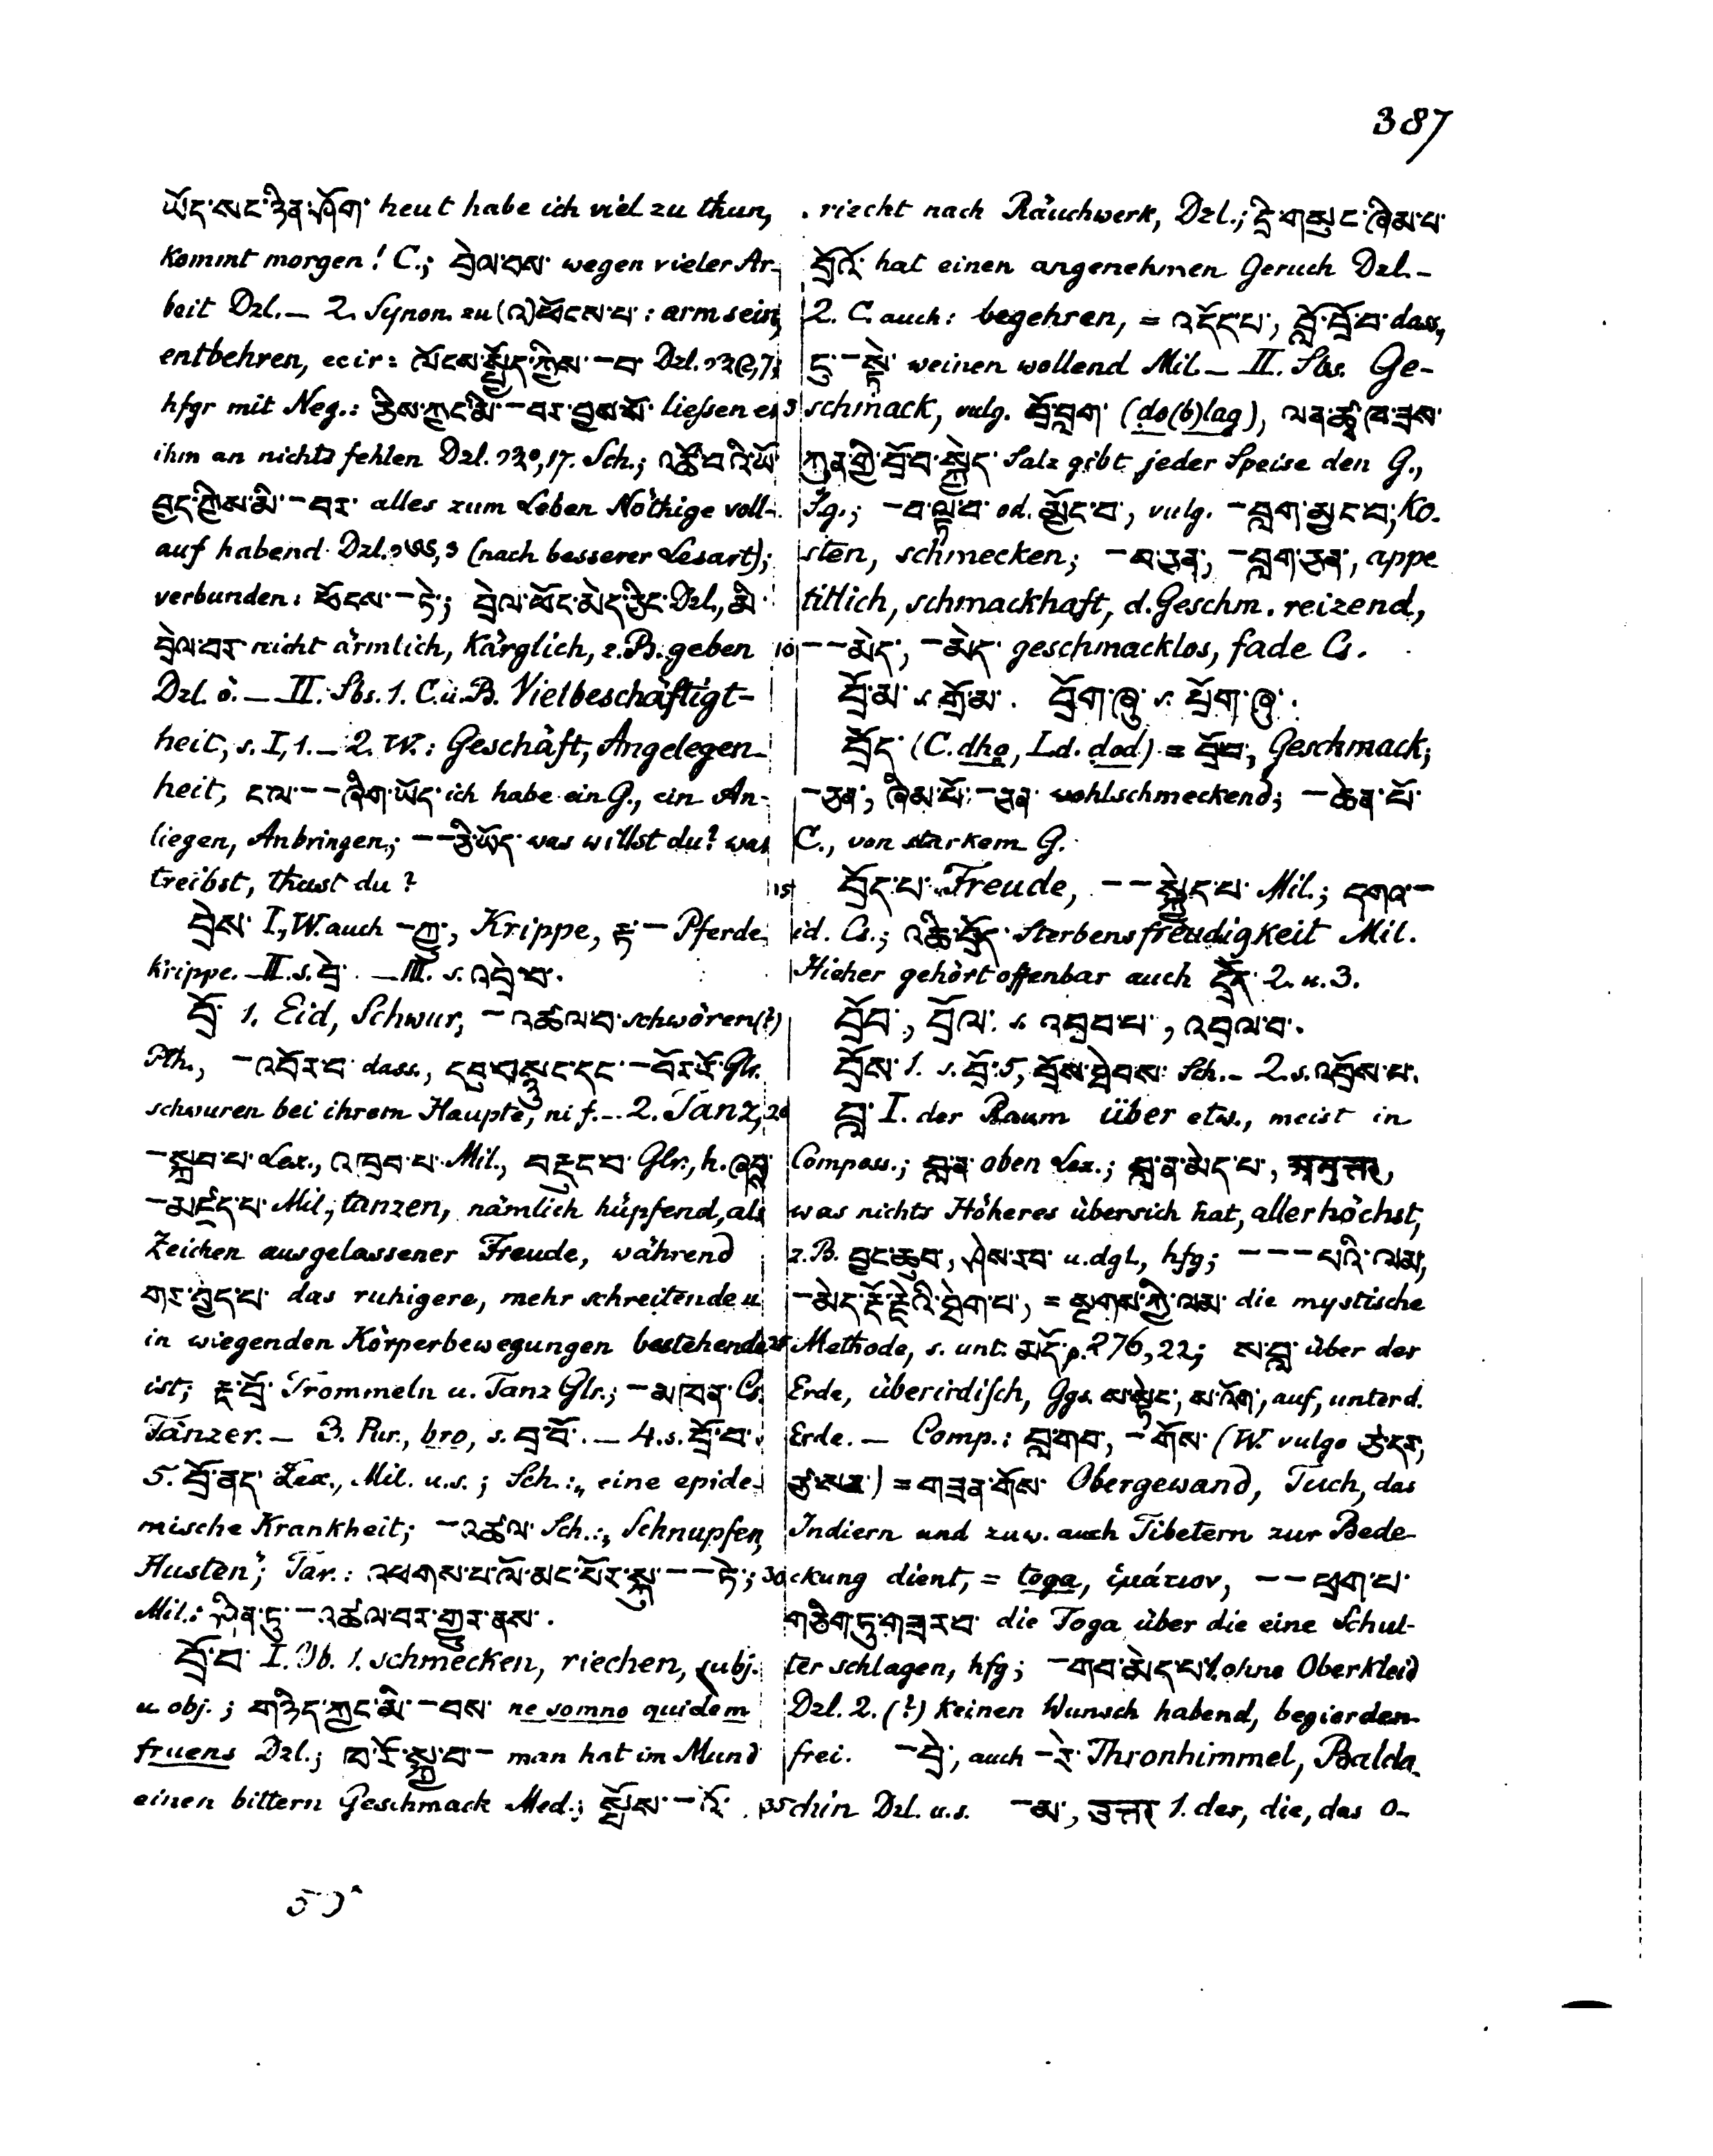 387
ཡོད་སང་ཉིན་ཤོག་ heut habe ich viel zu thun,
kommt morgen! C.; བྲེལ་བས་ wegen vieler Ar-
beit Dzl. — 2. Synon. zu (འ)ཕོངས་པ་: arm sein,
entbehren, ecir: ལོངས་སྤྱོད་ཀྱིས་ – བ་ Dzl.
hfgr mit Neg.: ཅིས་ཀྱང་མི་ – བར་བྱས་སོ་ liessen es
ihm an nichts fehlen Dzl. ༢༢༠, 17. Sch.; འཚོ་བའི་ཡོ་
བྱད་ཀྱིས་མི་ – བར་ alles zum Leben Nöthige voll-
auf habend Dzl. (nach besserer Lesart);
verbunden: ཕོངས་ – ཏེ་; བྲེལ་ཕོང་མེད་ཅིང་ Dzl., མི་
བྲེལ་བར་ nicht ärmlich, kärglich, z. B. geben
Dzl. ö. — II. Sbs. 1. C. u. B. Vielbeschäftigt-
heit, s. I, 1. — 2. W.: Geschäft, Angelegen-
heit, ང་ལ་ – – ཞིག་ཡོད་ ich habe ein G., ein An-
liegen, Anbringen; – – ཅི་ཡོད་ was willst du? was
treibst, thust du?
བྲེས་ I., W. auch – ཀྱ་, Krippe, རྟ་ – Pferde-
krippe. — II. s. བྲེ་. — III. s. འབྲེ་བ་.
བྲོ་ 1. Eid, Schwur, – འཚལ་བ་ schwören (?)
Pth., – འབོར་བ་ dass., དབུ་བསྙུང་དང་ – བོར་རོ་ Glr.
schwuren bei ihrem Haupte, ni f. — 2. Tanz,
– སྐྲབ་པ་ Lex., འཁྲབ་པ་ Mil., བརྡུང་བ་ Glr., h. ཞབྲོ་
– མཛད་པ་ Mil., tanzen, nämlich hüpfend, als
Zeichen ausgelassener Freude, während
གར་བྱེད་པ་ das ruhigere, mehr schreitende u.
in wiegenden Körperbewegungen bestehende
ist; རྔ་བྲོ་ Trommeln u. Tanz Glr.; – མཁན་ Cs.
Tänzer. — 3. Pur., bro, s. བྲ་བོ་. — 4. s. བྲོ་བ་.
5. བྲོ་ནད་ Lex., Mil. u.s.; Sch.: „eine epide-
mische Krankheit; – འཚལ་ Sch.: „Schnupfen,
Husten"; Tar.: འཕགས་པ་ལོ་མང་པོར་སྐུ་ – – ཏེ་;
Mil.: ཤིན་ཏུ་ – འཚལ་བར་གྱུར་ནས་.
བྲོ་བ་ I. Vb. 1. schmecken, riechen, subj.
u. obj.; གཉིད་ཀྱང་མི་ – བས་ ne somno quidem
fruens Dzl.; ཁ་རོ་སྐྱ་བ་ – man hat im Mund
einen bittern Geschmack Med.; སྤོས་ – འོ་
riecht nach Räuchwerk, Dzl.; དྲི་གསུང་ཞིམ་པ་
བྲོའོ་ hat einen angenehmen Geruch Dzl. —
2. C. auch: begehren, = འདོད་པ་, བློ་བྲོ་བ་ dass.,
ངུ་ – སྟེ་ weinen wollend Mil. — II. Sbs. Ge-
5 schmack, vulg. བྲོ་བླག་ (do(b)lag), ལན་ཚྭ་ཁ་ཟས་
ཀུན་གྱི་བྲོ་བ་སྐྱེད་ Salz gibt jeder Speise den G.,
S.g.; – བ་ལྟ་བ་ od. མྱོང་བ་, vulg. – བླག་མྱང་བ་, ko-
sten, schmecken; – བ་ཅན་, – བླག་ཅན་, appe
titlich, schmackhaft, d. Geschm. reizend,
10 – – མེད་, – མེད་ geschmacklos, fade Cs.
བྲོ་མ་ s. གྲོ་མ་. བྲོག་ཞུ་ s. པྲོག་ཞུ་.
བྲོད་ (C. dho, Ld. dod) = བྲོ་བ་, Geschmack;
– ཅན་, ཞིམ་པོ་ – ཅན་ wohlschmeckend; – ཆེན་པོ་
C., von starkem G.
15 བྲོད་པ་ Freude, – – སྐྱེད་པ་ Mil.; དགའ་ –
id. Cs.; འཆི་བྲོད་ Sterbensfreudigkeit Mil.
Hieher gehört offenbar auch དྲོད་ 2. u. 3.
བྲོབ་, བྲོལ་ s. འབྲབ་པ་, འབྲལ་བ་.
བྲོས་ 1. s. བྲོ་ 5, བྲོས་ཐེབས་ Sch. — 2. s. འབྲོས་པ་.
20 བླ་ I. der Raum über etw., meist in
Compos.; བླ་ན་ oben Lex.; བླ་ན་མེད་པ་, अनुत्तर,
was nichts Höheres über sich hat, allerhöchst,
z. B. བྱང་ཆུབ་, ཤེས་རབ་ u. dgl., hfg; – – – པའི་ལམ་,
– མེད་རྡོ་རྗེའི་ཐེག་པ་, = སྔགས་ཀྱི་ལམ་ die mystische
25 Methode, s. unt. མདོ་ p. 276, 22; ས་བླ་ über der
Erde, überirdisch, Ggs. ས་སྟེང་, ས་འོག་, auf, unter d.
Erde. — Comp.: བླ་གབ་, – གོས་ (W. vulgo
) = གཟན་གོས་ Obergewand, Tuch, das
Indiern und zuw. auch Tibetern zur Bede-
30 ckung dient, = toga, ἱμάτιον, – – ཕྲག་པ་
གཅིག་ཏུ་གཟར་བ་ die Toga über die eine Schul-
ter schlagen, hfg; – གབ་མེད་པ་ 1. ohne Oberkleid
Dzl. 2. (?) keinen Wunsch habend, begierden-
frei. – བྲེ་, auch – རེ་ Thronhimmel, Balda-
35 chin Dzl. u.s. – མ་, उत्तर 1. der, die, das o-